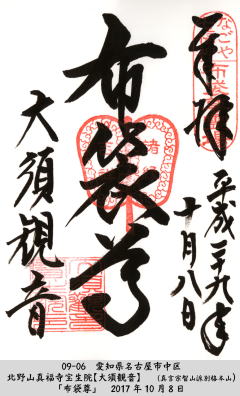 奉拝
なごや
平成二十九年
十月八日
布袋尊
大須観音
09-06 愛知県名古屋市中区
北野山真福寺宝生院【大須観音】 (真言宗智山派別格本山)
「布袋尊」 2017年10月8日